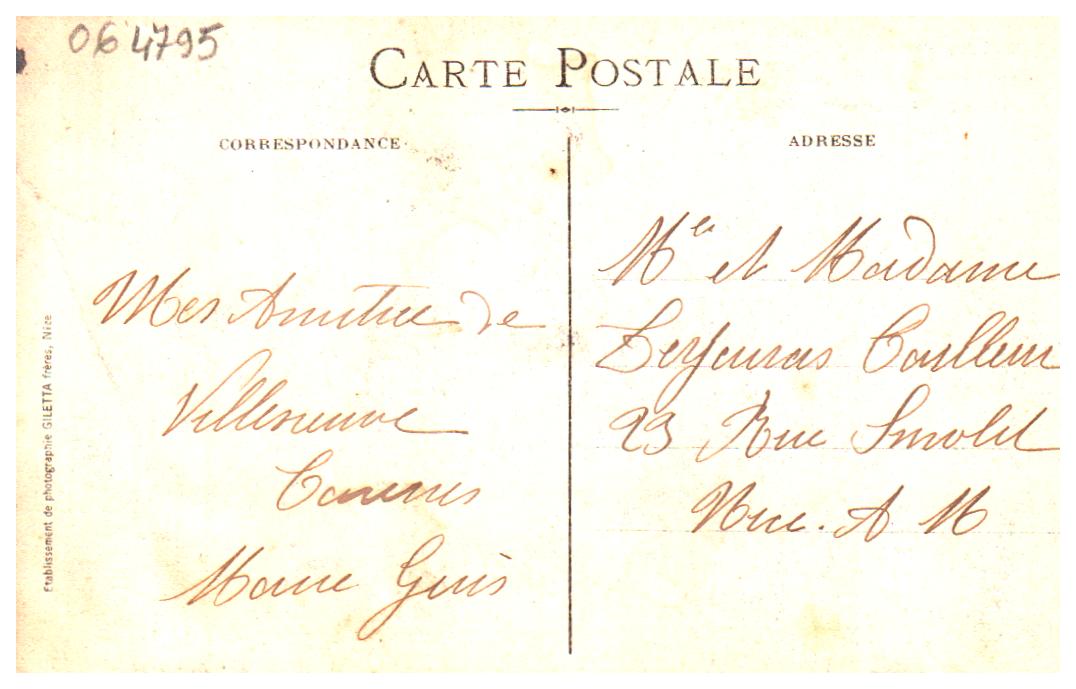 06 4795
CARTE POSTALE
CORRESPONDANCE
ADRESSE
Mes Amitiée de
Villeneuve
Marie Guis
Mr et Madame
Tailleur
23 Rue Smolet
Nice. A M
Etablissement de photographie GILETTA frères, Nice